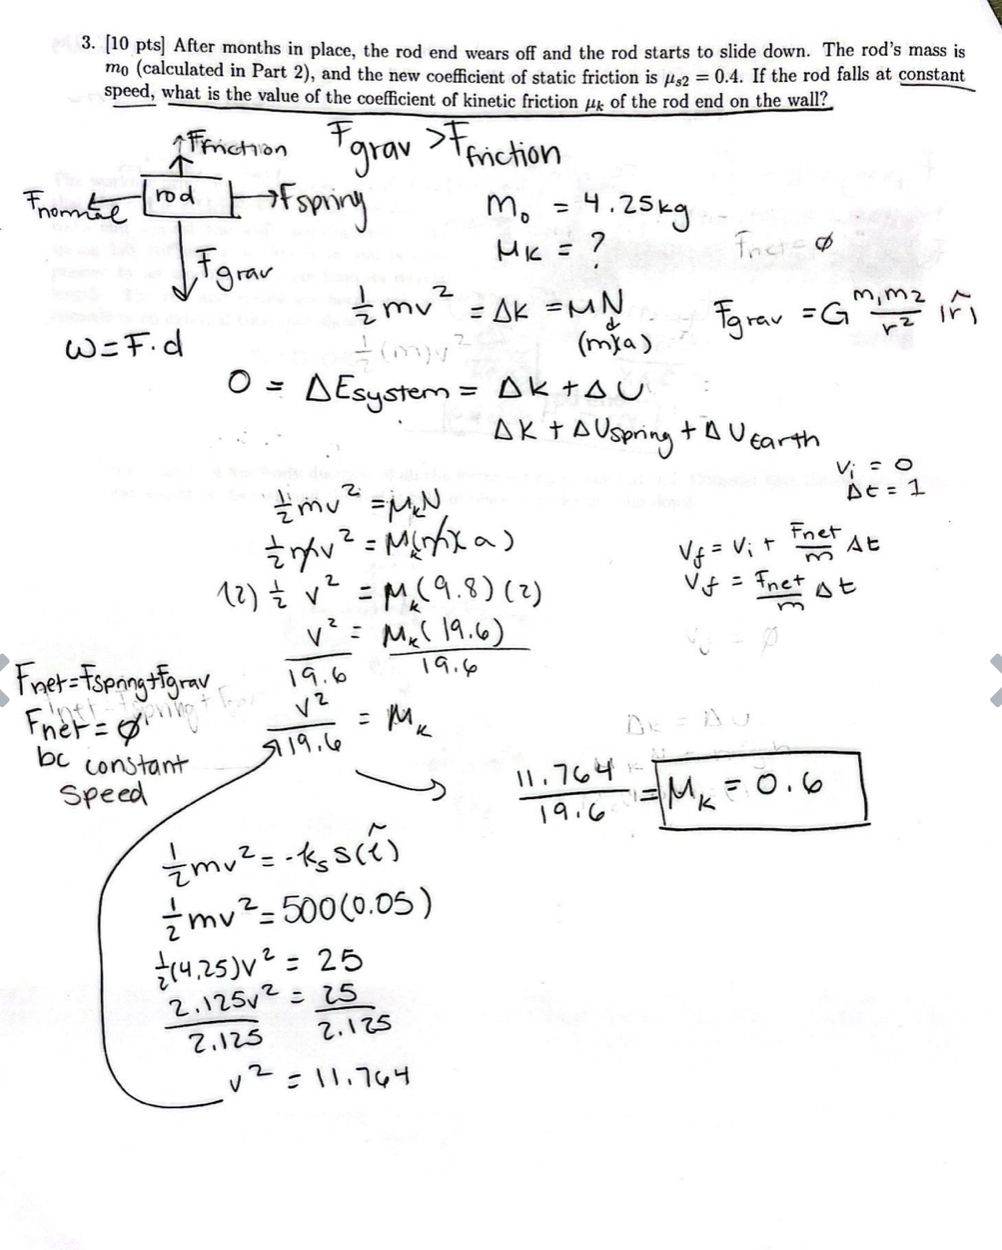 3. [10 pts] After months in place, the rod end wears off and the rod starts to slide down. The rod's mass is
m₀ (calculated in Part 2), and the new coefficient of static friction is μₛ₂ = 0.4. If the rod falls at constant
speed, what is the value of the coefficient of kinetic friction μₖ of the rod end on the wall?
↑Ffriction
Fgrav > Ffriction
Fnormal
rod
→Fspring
m₀ = 4.25kg
Mk = ?
Fnet = ∅
Fgrav
½mv² = Δk = MN
(m)(a)
Fgrav = G m₁m₂/r² |r̂|
½(m)v²
W = F·d
0 = ΔEsystem = Δk + ΔU
Δk + ΔUspring + ΔUEarth
Vi = 0
Δt = 1
½mv² = MkN
½mv² = Mk(m)(a)
Vf = Vi + Fnet/m Δt
Vf = Fnet/m Δt
(2)½v² = Mk(9.8)(2)
v²/19.6 = Mk(19.6)/19.6
Fnet = Fspring + Fgrav
Fnet = ∅
bc constant
speed
v²/19.6 = Mk
Δk = ΔU
11.764/19.6 = Mk = 0.6
½mv² = -ksS(L̂)
½mv² = 500(0.05)
½(4.25)v² = 25
2.125v²/2.125 = 25/2.125
v² = 11.764